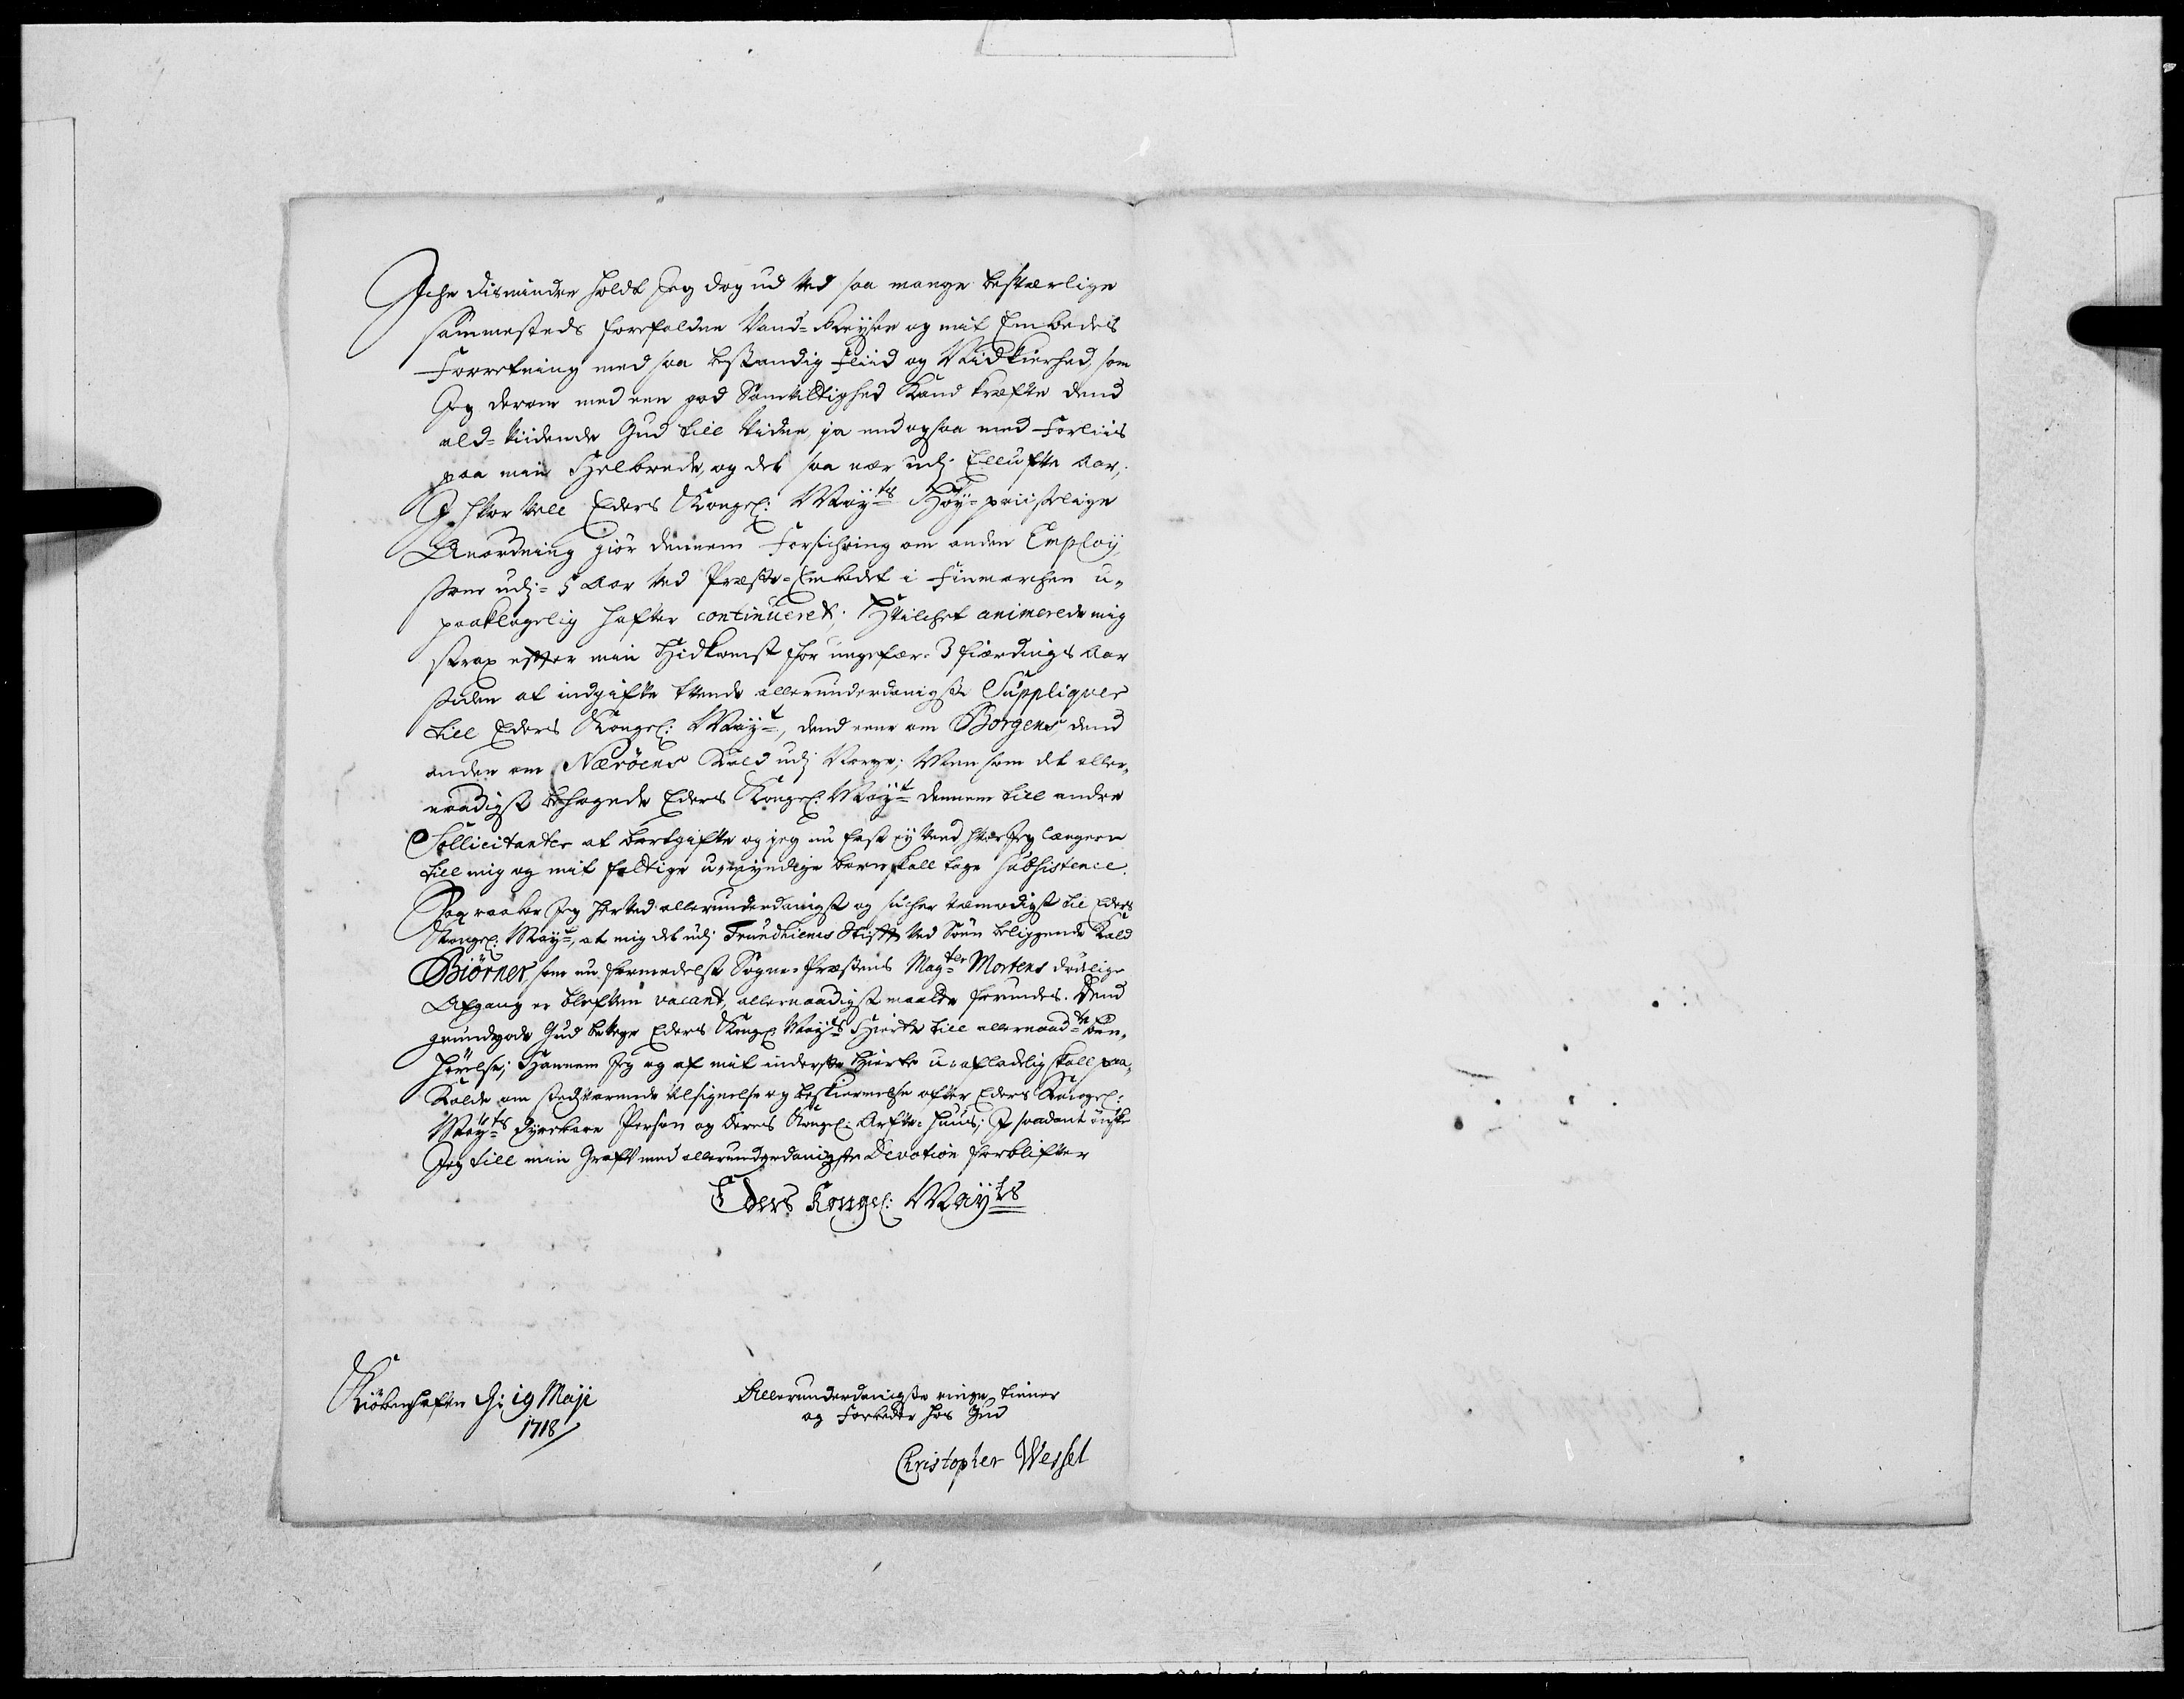 Iche disminder holdt Jeg dog ud ved saa mange besværlige
sammesteds forefaldne Vand-Reyser og mit Embedes
Forretning med saa bestandig Fliid og Nidkierhed, som
Jeg derom med een god Samvittighed Kand kræfve dend
ald-viidende Gud till Vidne, ja end ogsaa med Forliis
paa min Helbrede, og det saa nær udj Ellufve Aar,
I hvor vell Eders Kongel: May:ts Høy-priiselige
Anordning giør dennem Forsichring om anden Employ,
som udj 5 Aar ved Præste-Embedet i Finmarchen u-
paaklagelig hafver continueret; Hvilchet animerede mig
strax efter min Hidkomst for ungefær 3 fierdings Aar
siden at indgifve tvende allerunderdanigste Suppliqver
till Eders Kongel: May:t, dend eene om Borgens, dend
anden om Nærøens Kald udj Norge; Men som det aller-
naadigst behagede Eders Kongel: May:t dennem till andre
Sollicitanter at bortgifve og jeg nu fast ej veed hvor Jeg længere
till mig og mit fattige u-myndige barn skall tage Subsistence.
Saa raaber Jeg herved allerunderdanigst og sucher vemodigst til Eders
Kongel: May:t, at mig det udj Trundhiems Stift ved Søen beliggende Kald
Biørnør, som nu formedelst Sogne-Præstens Mag:ter Mortens dødelige
Afgang er blefven vacant, allernaadigst maatte forundes. Dend
grundgode Gud bevege Eders Kongel: May:ts Hierte till allernaad:te bøn-
hørelse; Hannem Jeg og af mit inderste Hierte u-afladelig skall paa-
Kalde om stedsvarende Velsignelse og beskiermelse ofver Eders Kongel:
May:ts dyrebare Person og Deres Kongel: Arfve-Huus; I saadant ønske
Jeg till min Graf med allerunderdanigste Devotion forblifver
Eders Kongel: May:ts
Kiøbenhafn d: 19 Maji
1718
Allerunderdanigste ringe tiener
og Forbeder hos Gud
Christopher Wessel